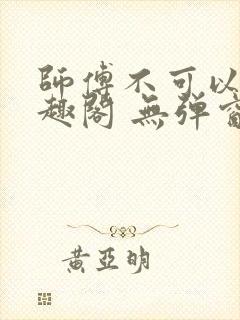 師傅不可以
趣閣 無弹窗
黃亞明